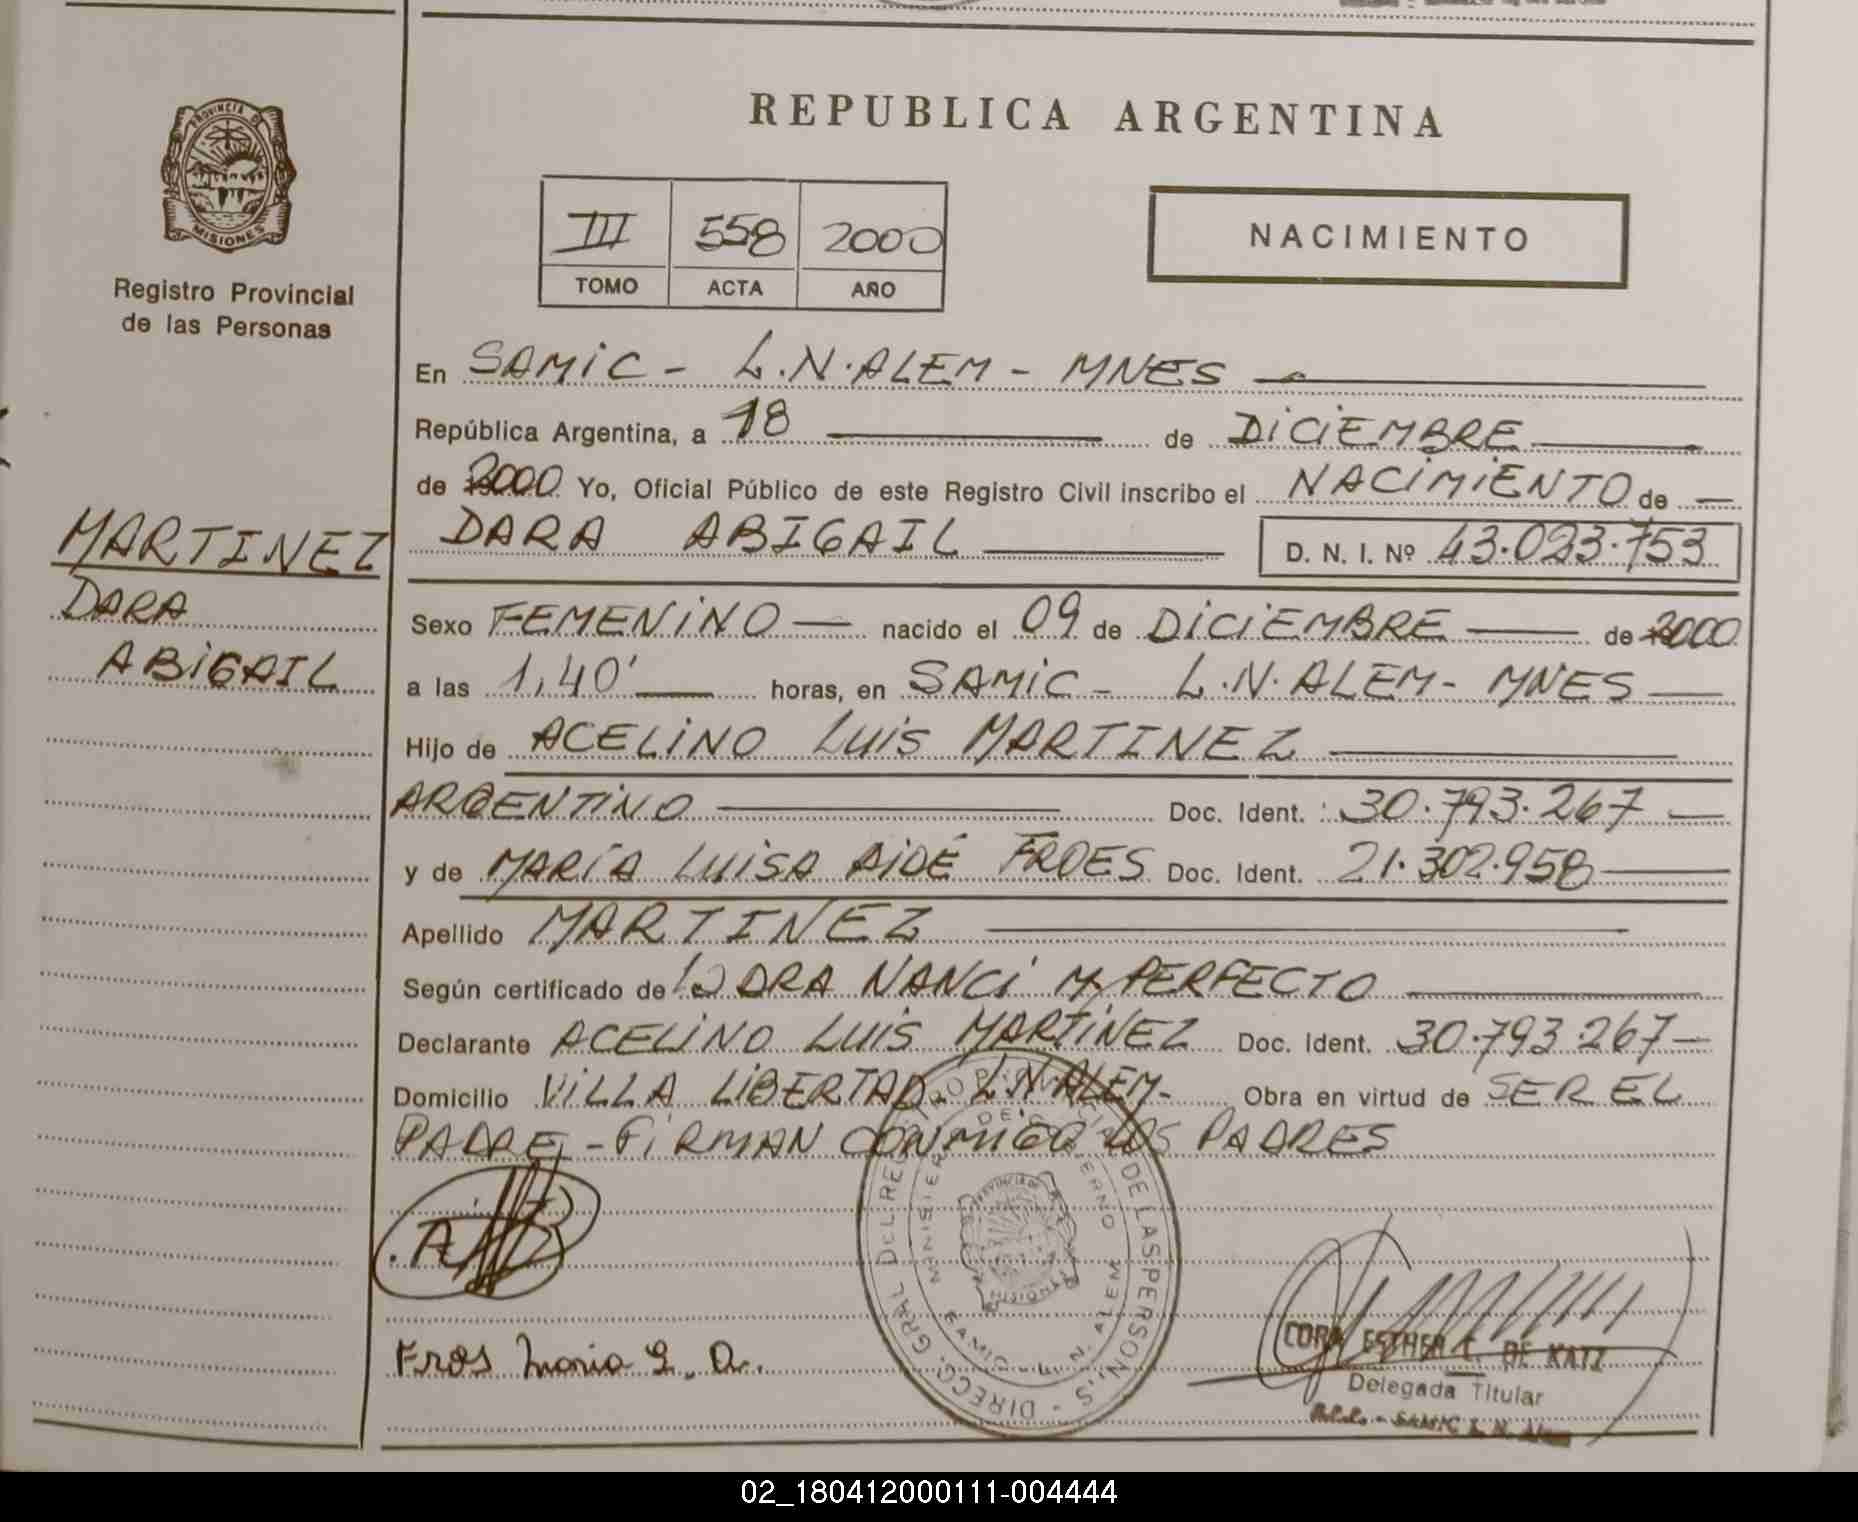 REPUBLICA ARGENTINA
PROVINCIA DE
MISIONES
Registro Provincial
de las Personas
III 558 2000
TOMO ACTA AÑO
NACIMIENTO
En SAMIC - L.N.ALEM - MNES
República Argentina, a 18 de DICIEMBRE
de 2000 Yo, Oficial Público de este Registro Civil inscribo el NACIMIENTO de
DARA ABIGAIL D. N. I. Nº 43.023.753
MARTINEZ
DARA
ABIGAIL
Sexo FEMENINO nacido el 09 de DICIEMBRE de 2000
a las 1,40' horas, en SAMIC - L.N.ALEM - MNES
Hijo de ACELINO LUIS MARTINEZ
ARGENTINO Doc. Ident. 30.793.267
y de MARÍA LUISA AIDÉ FROES Doc. Ident. 21.302.958
Apellido MARTINEZ
Según certificado de la DRA NANCI M PERFECTO
Declarante ACELINO LUIS MARTINEZ Doc. Ident. 30.793.267
Domicilio VILLA LIBERTAD L.N.ALEM- Obra en virtud de SER EL
PADRE - FIRMAN CONMIGO LOS PADRES
DE LAS PERSONAS - DIRECC. GRAL DEL
SAMIC - L. N. ALEM
PROVINCIA DE
MISIONES
Fros Maria L. A.
CORA ESTHER C. DE KATZ
Delegada Titular
SAMIC L. N. Alem
02_180412000111-004444